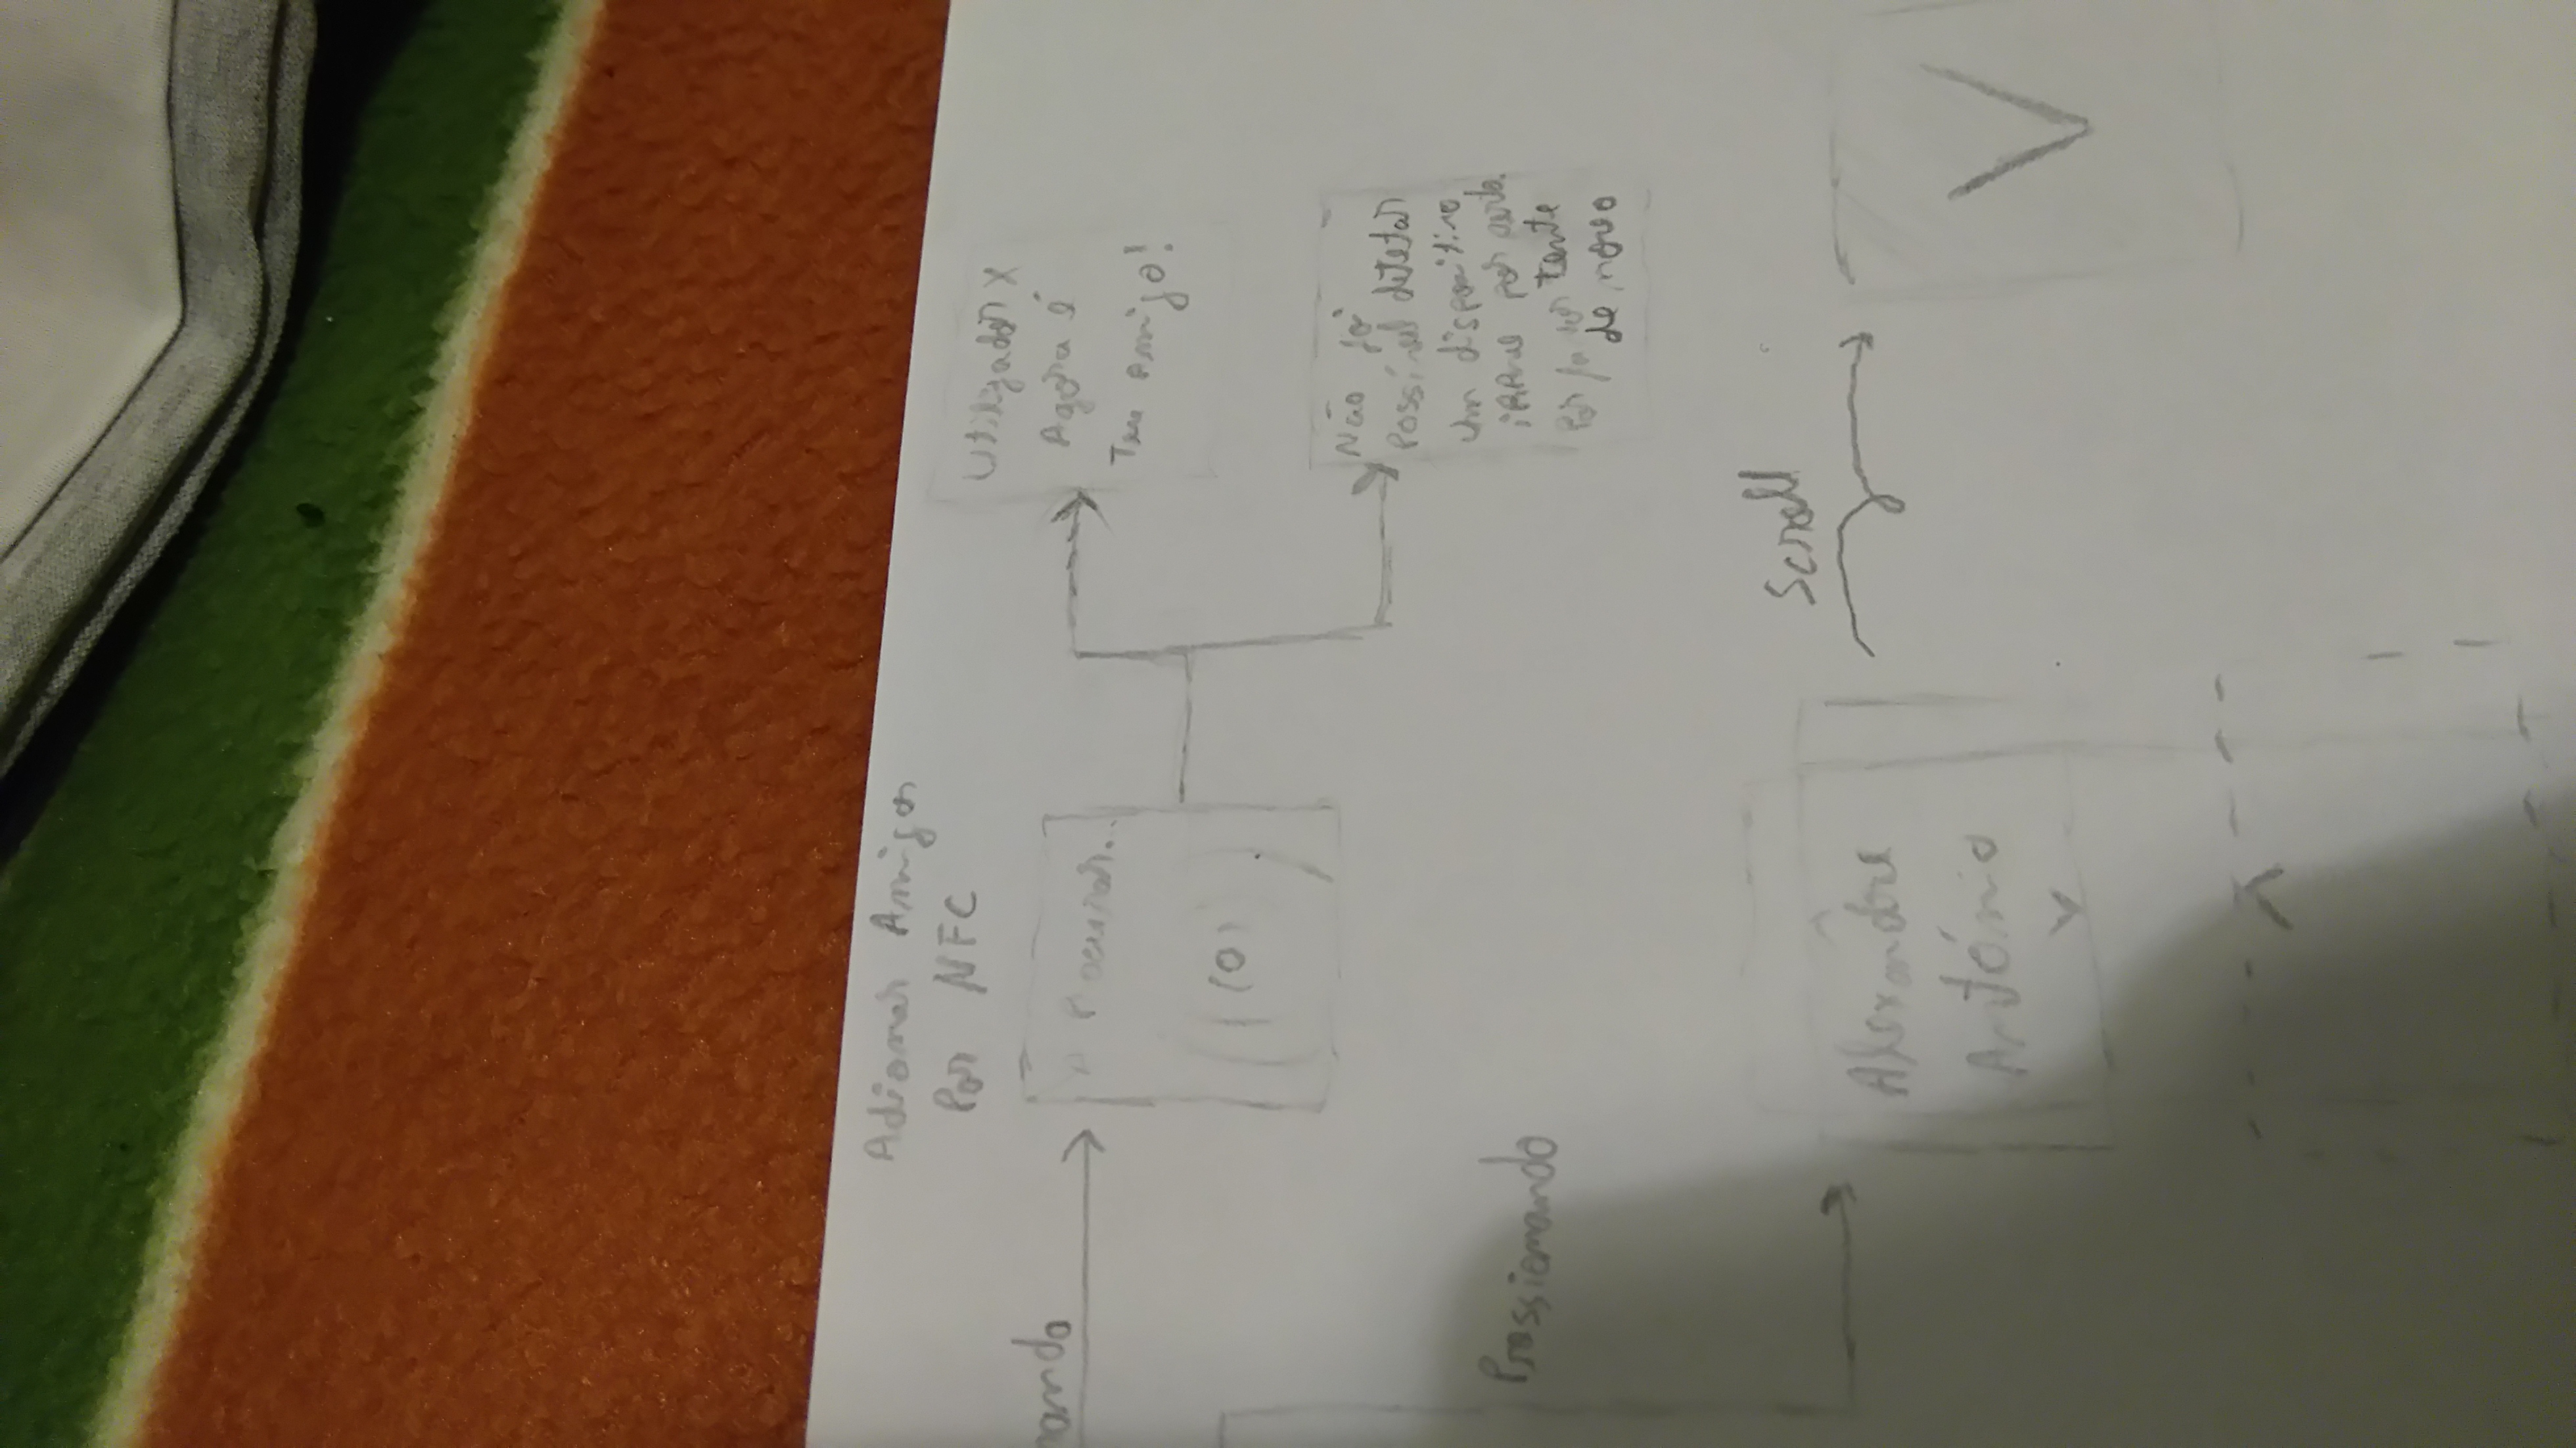 Adicionar Amigos
Por NFC
nando
A Procurar...
((0))
Utilizador X
Agora é
Teu Amigo!
Não foi
Possível detetar
um dispositivo
por perto.
Por favor tente
de novo
Pressionando
Scroll
Alexandre
António
V